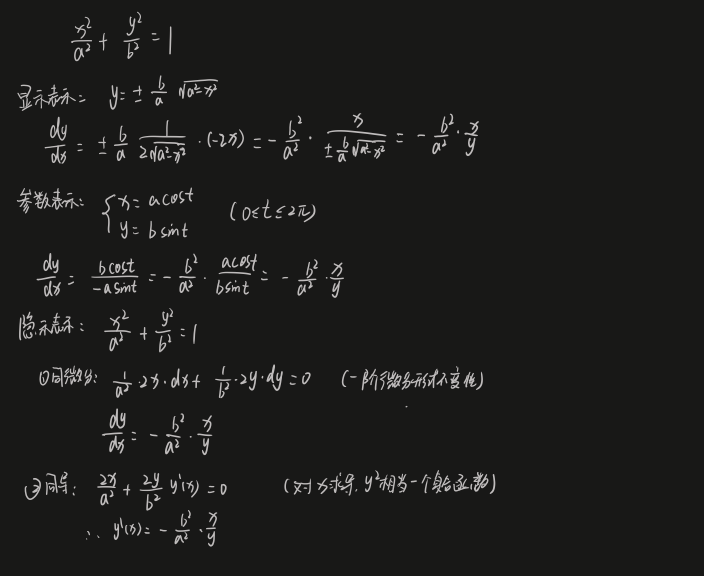 x²/a² + y²/b² = 1
显示表示： y = ± b/a √(a²-x²)
dy/dx = ± b/a · 1/(2√(a²-x²)) · (-2x) = - b²/a² · x/(± b/a √(a²-x²)) = - b²/a² · x/y
参数表示： { x = a cost
y = b sint (0≤t≤2π)
dy/dx = b cost/(-a sint) = - b²/a² · a cost/(b sint) = - b²/a² · x/y
隐示表示： x²/a² + y²/b² = 1
①同微分： 1/a² · 2x · dx + 1/b² · 2y · dy = 0 (一阶微分形式不变性)
dy/dx = - b²/a² · x/y
②同导： 2x/a² + 2y/b² y'(x) = 0 (对x求导, y²相当一个复合函数)
∴ y'(x) = - b²/a² · x/y